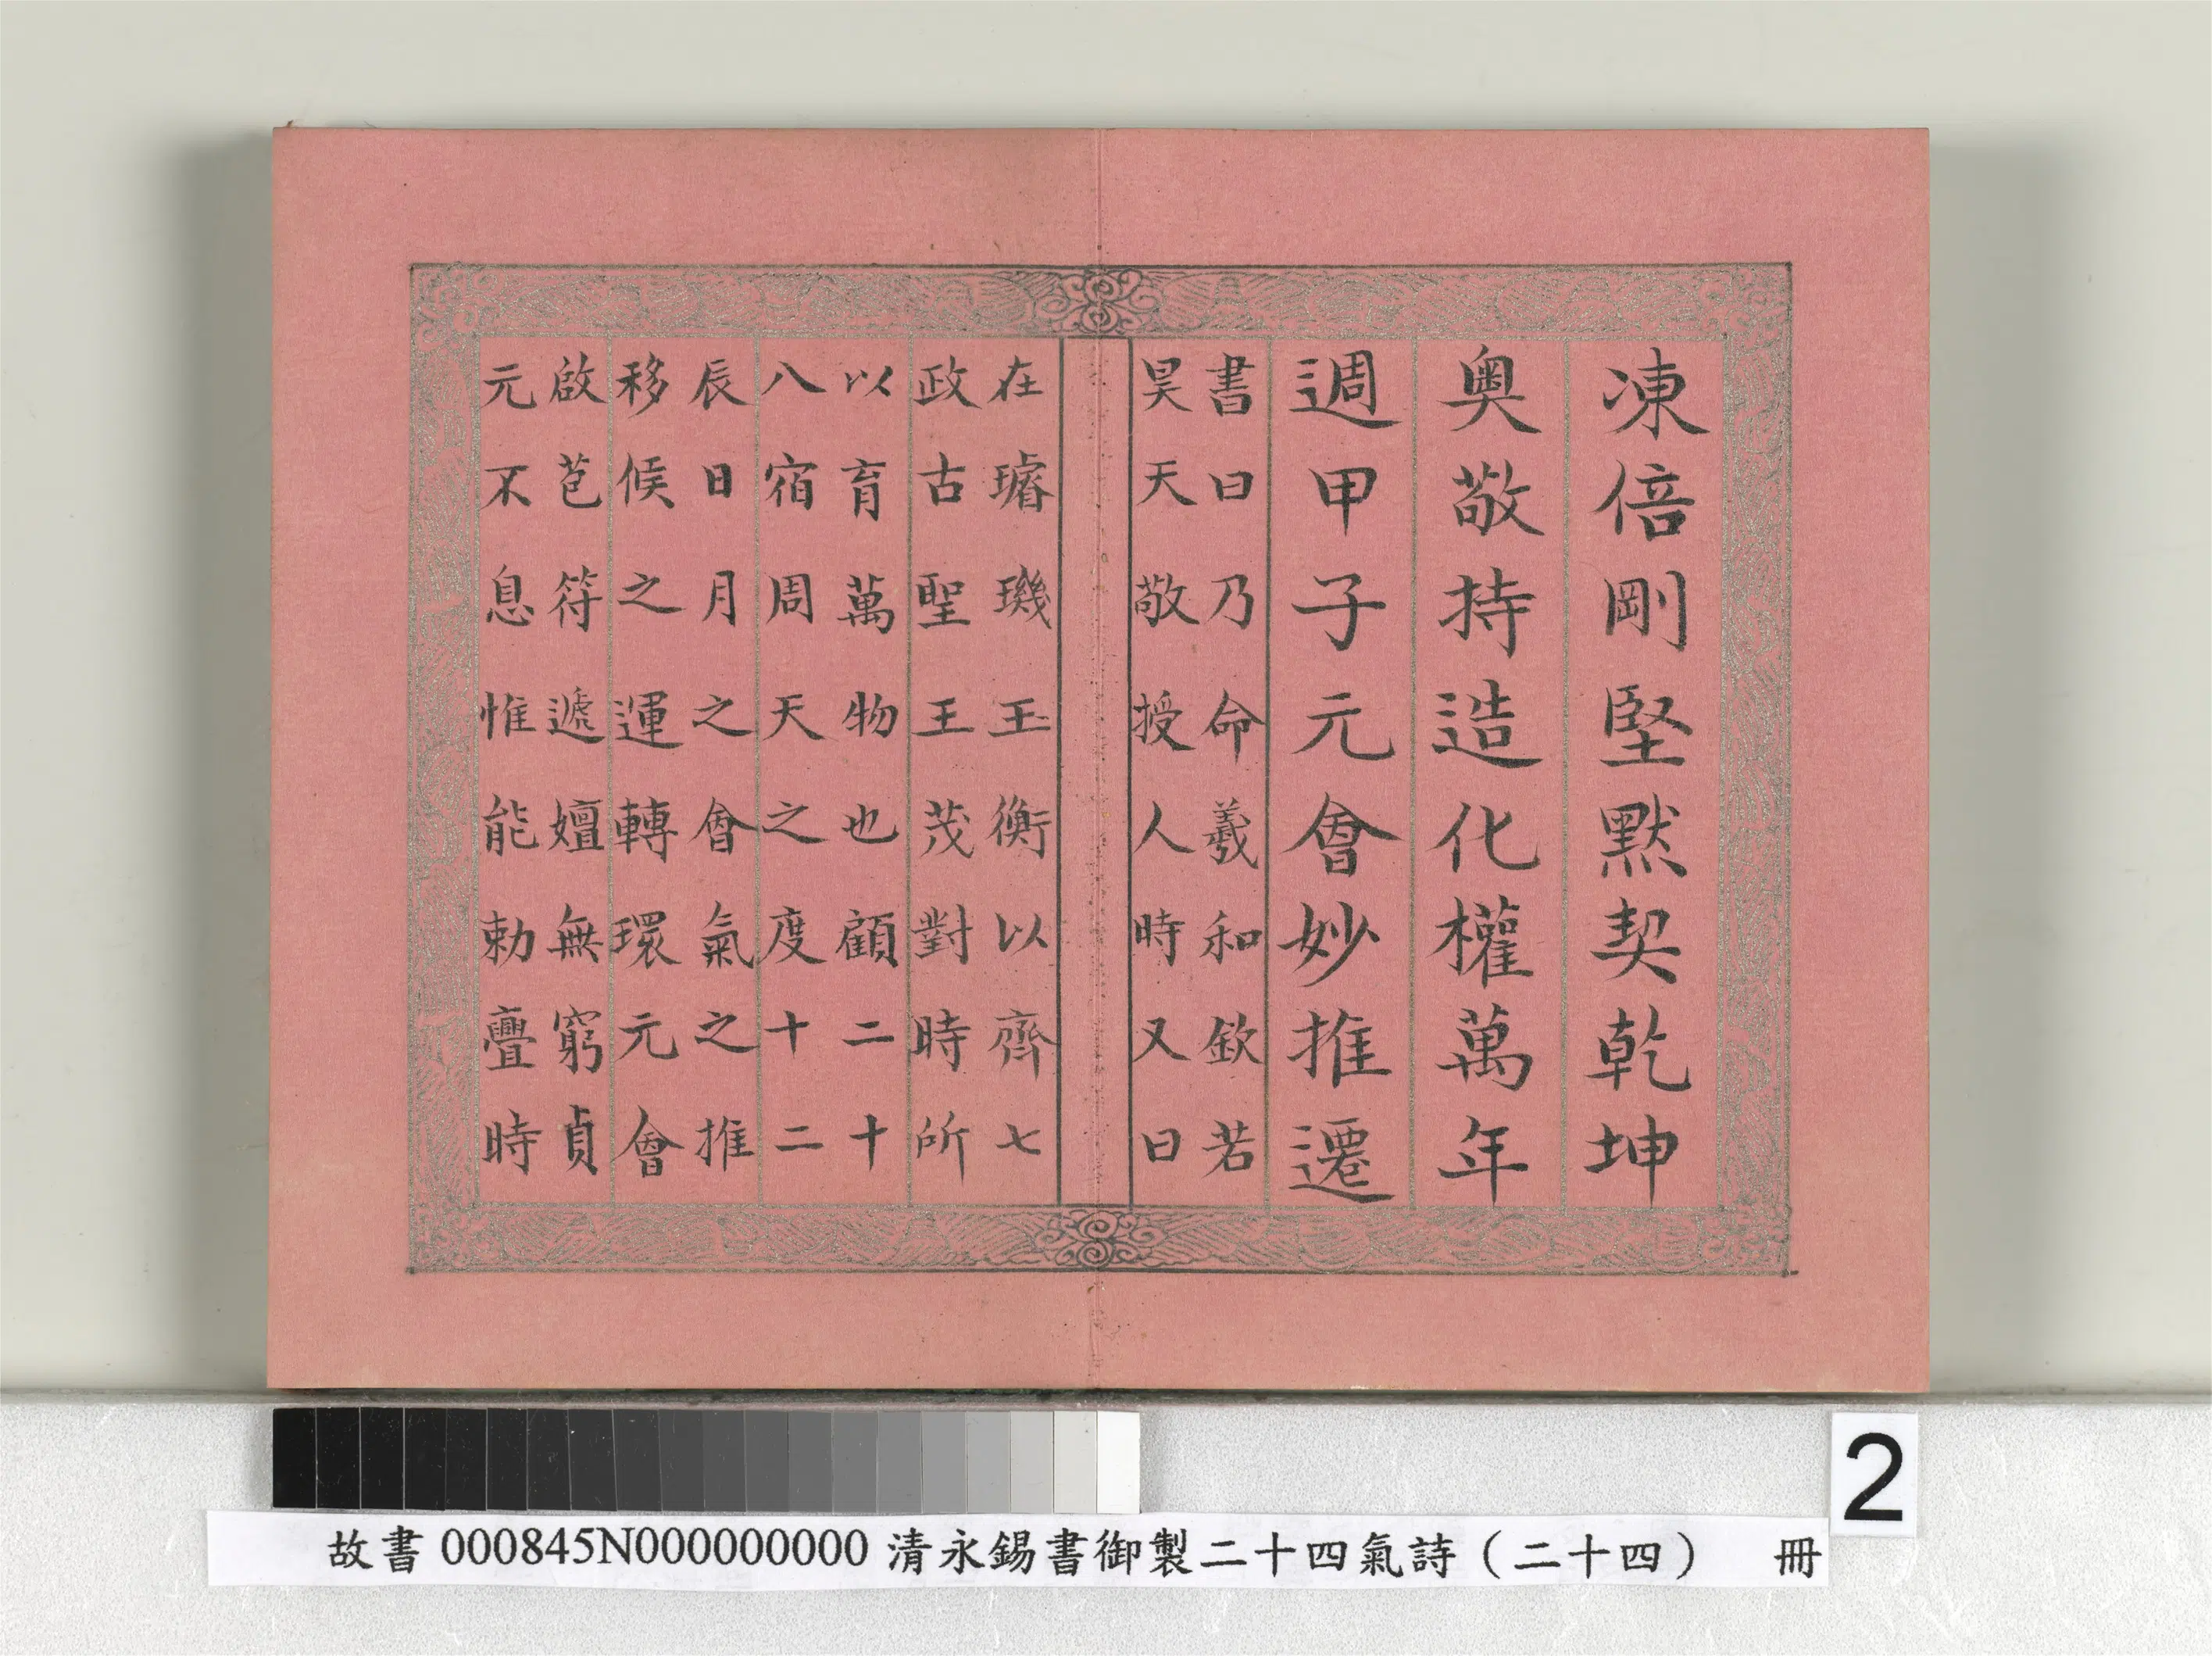 凍倍剛堅默契乾坤
奥敬持造化權萬年
週甲子元會妙推遷
書曰乃命羲和欽若
昊天敬授人時又曰
在璿璣玉衡以齊七
政古聖王茂對時所
以育萬物也顧二十
八宿周天之度十二
辰日月之會氣之推
移候之運轉環元會
啟苞符遞嬗無窮貞
元不息惟能勅亹時
2
故書000845N000000000 清永錫書御製二十四氣詩（二十四） 冊